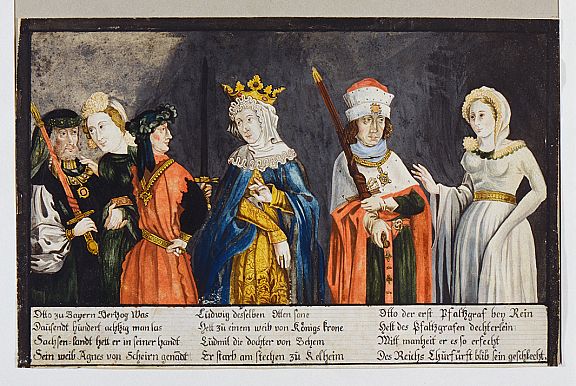 Otto zu Bayern Hertzog Was
Dausendt hundert achtzig man las
Sachsen landt hett er in seiner handt
Sein weib Agnes von Scheirn genādt
Ludwig desselben Otten sone
Hett zu einem weib von Königs krone
Ludmil die dochter von Behem
Er starb am stechen zů Kelheim
Otto der erst Pfaltzgraf bey Rein
Hett des Pfaltzgrafen dechterlein
Mitt manheit er es so erfecht
Des Reichs Churfürst blib sein geschlecht.